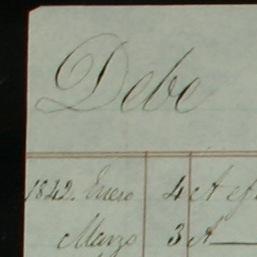 Debe
1842. Enero 4 A ef
Marzo 3 A